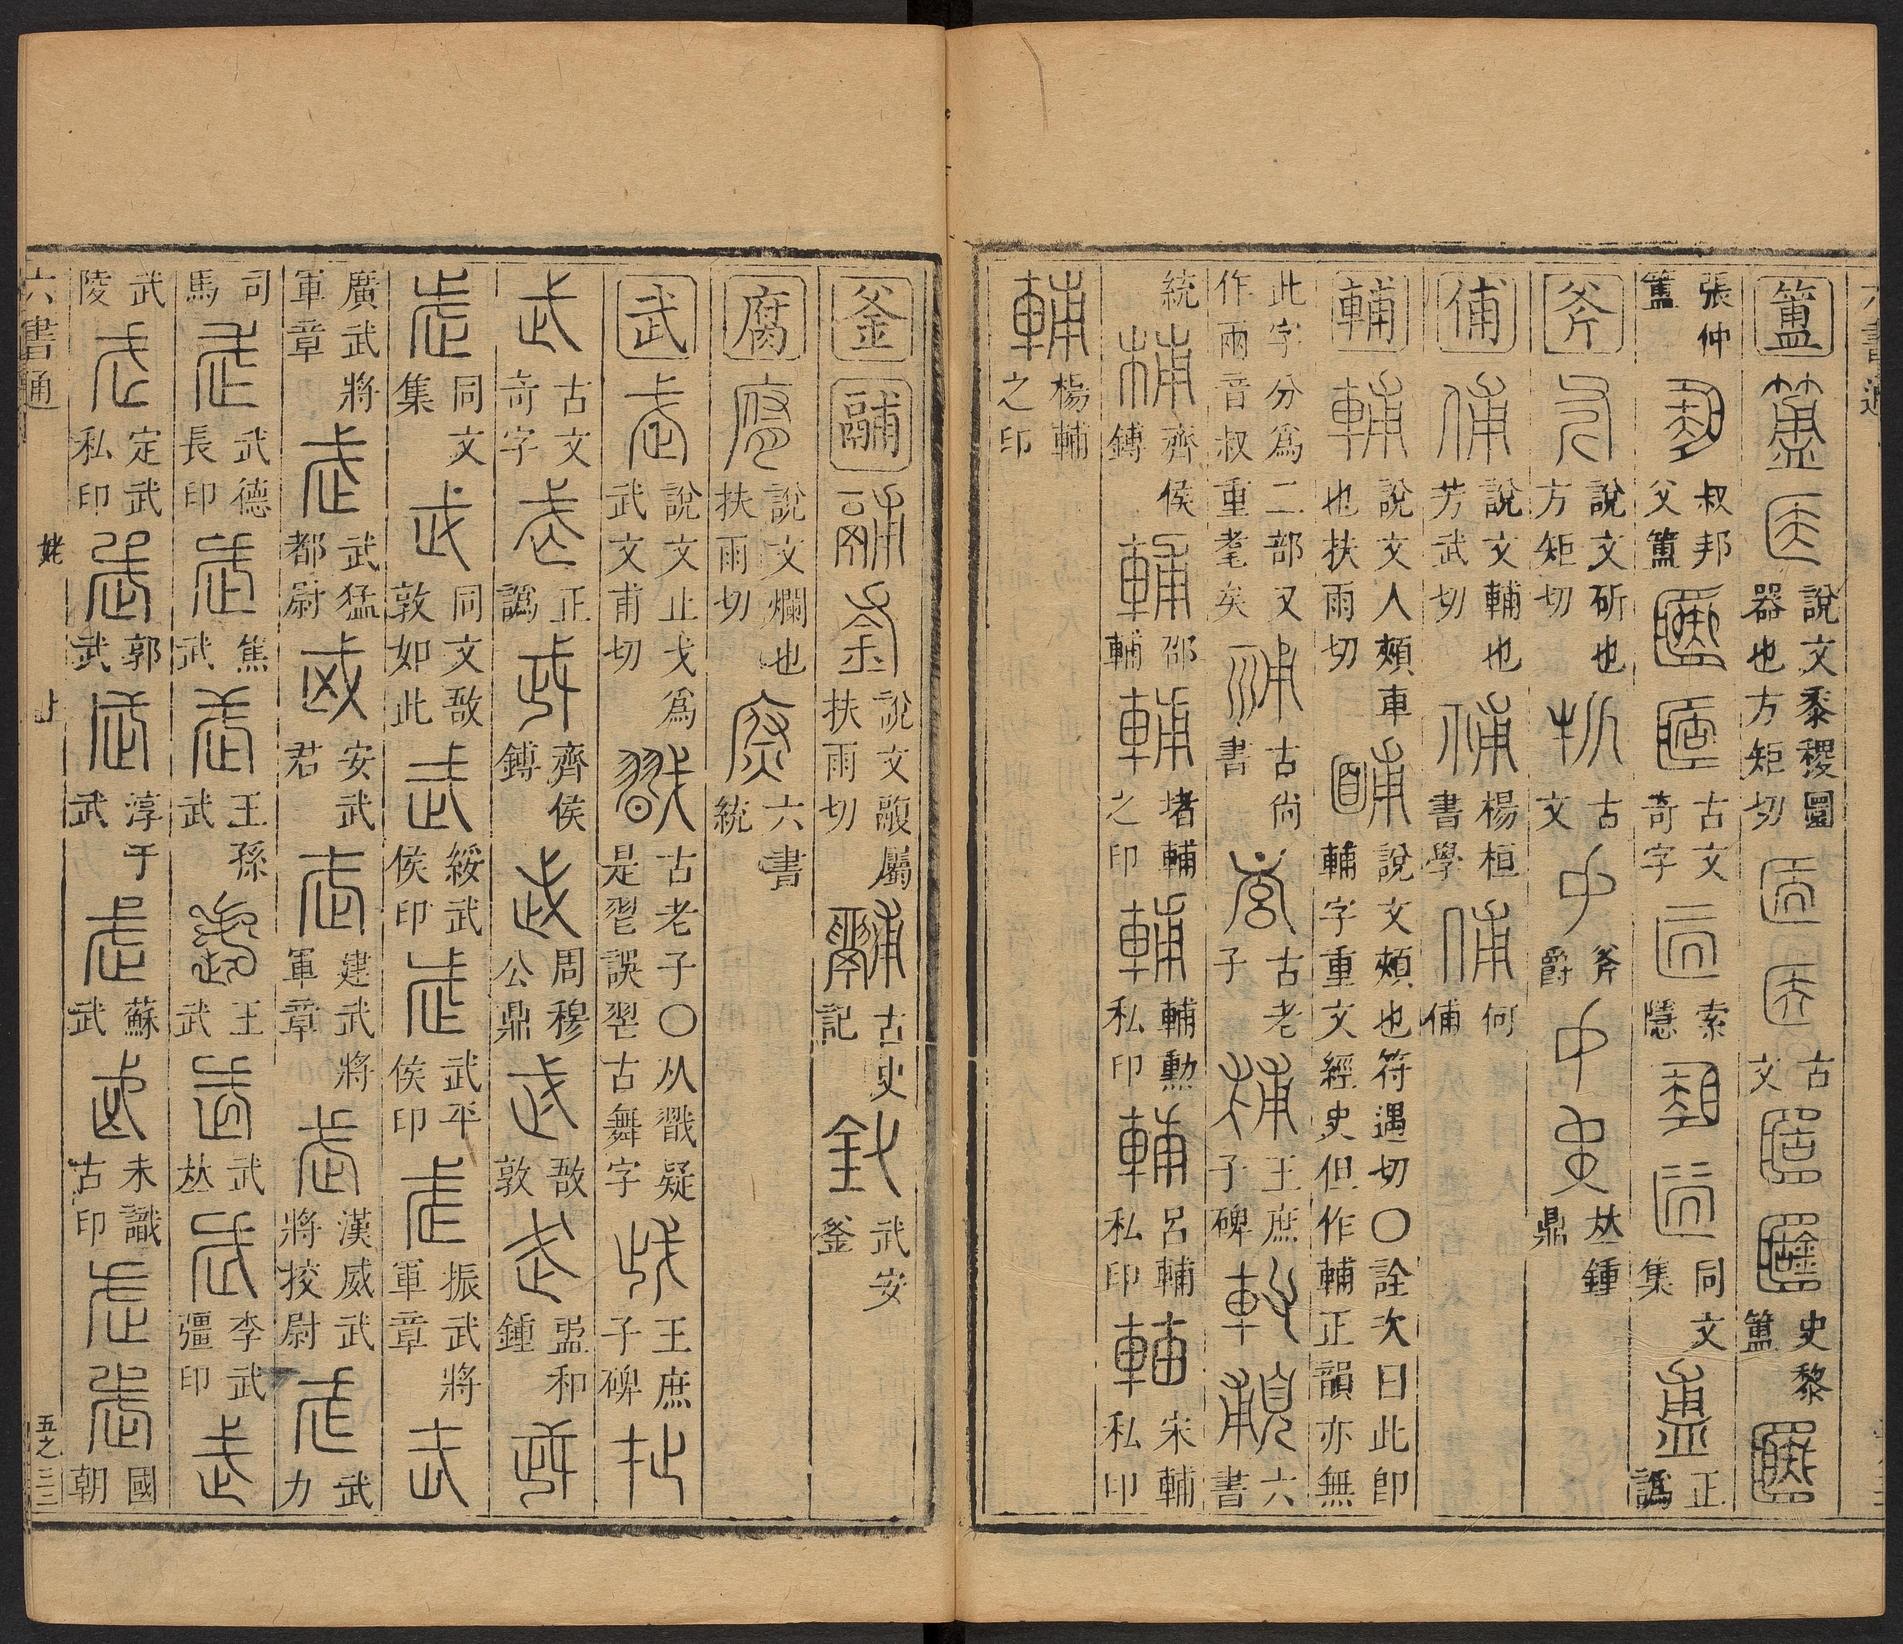 簠 說文黍稷圜器也方矩切 古文 史黎簠
張仲簠 叔邦父簠 古文奇字 索隱 同文集 正譌
斧 說文斫也方矩切 古文 斧爵 丛鍾鼎
俌 說文輔也芳武切 楊桓書學 何俌
輔 說文人頰車也扶雨切 䩉 說文頰也符遇切〇詮次日此卽輔字重文經史但作輔正韻亦無
此字分爲二部又作兩音叔重耄矣 古尙書 古老子 王庶子碑 六書
統 齊侯鎛 邵輔 堵輔之印 輔勳私印 呂輔私印 宋輔私印
楊輔之印
釜 鬴 說文鍑屬扶雨切 古史記 武安釜
腐 說文爛也扶雨切 六書統
武 說文止戈爲武文甫切 古老子〇从戩疑是習誤習古舞字 王庶子碑
古文奇字 正譌 齊侯鎛 周穆公鼎 敔敦 盄和鍾
同文集 同文敔敦如此 綏武侯印 武平侯印 振武將軍章
廣武將軍章 武猛都尉 安武君 建武將軍章 漢威武將挍尉 武力
司馬 武德長印 焦武 王孫武 王武 武丛 李武彊印
武陵 定武私印 郭武 淳于武 蘇武 未識古印 國朝
六書通 姥 上 五之三三